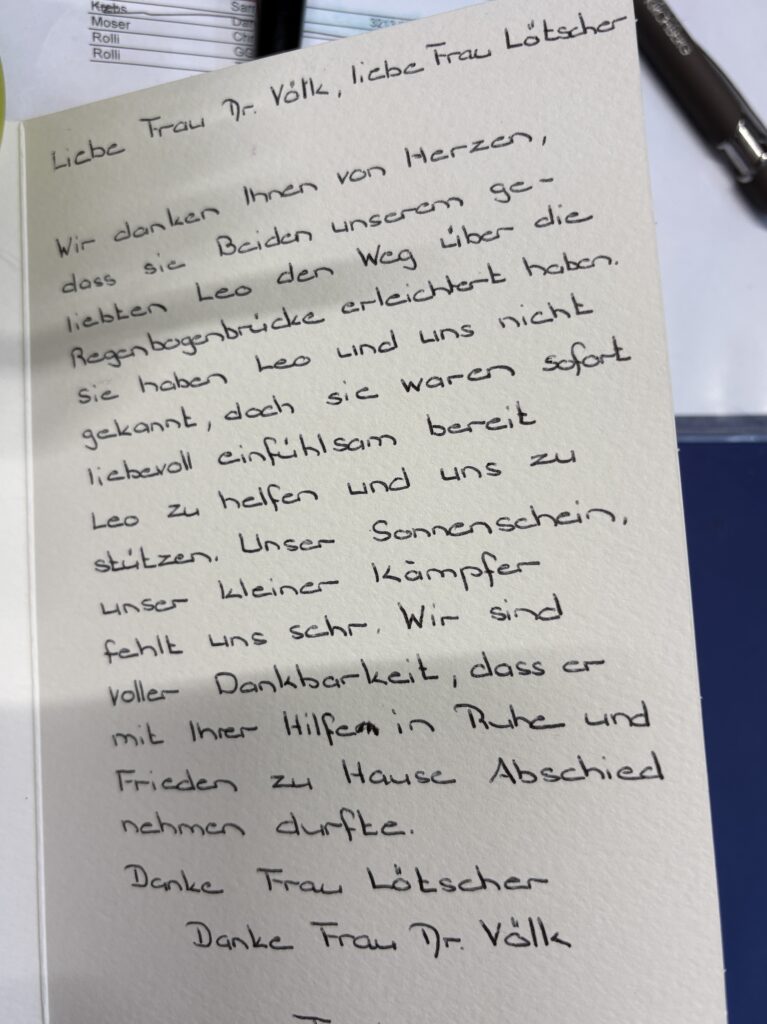 Krebs
Moser
Rolli
Rolli
Liebe Frau Dr. Völk, liebe Frau Lötscher
Wir danken Ihnen von Herzen,
dass sie Beiden unserem ge-
liebten Leo den Weg über die
Regenbogenbrücke erleichtert haben.
Sie haben Leo und uns nicht
gekannt, doch sie waren sofort
liebevoll einfühlsam bereit
Leo zu helfen und uns zu
stützen. Unser Sonnenschein,
unser kleiner Kämpfer
fehlt uns sehr. Wir sind
voller Dankbarkeit, dass er
mit Ihrer Hilfe in Ruhe und
Frieden zu Hause Abschied
nehmen durfte.
Danke Frau Lötscher
Danke Frau Dr. Völk